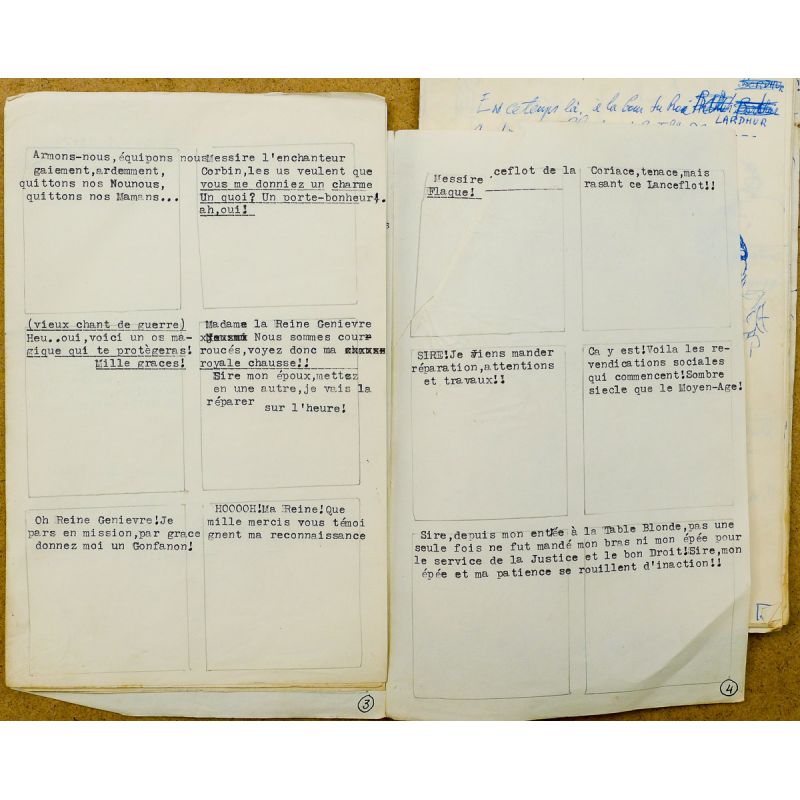 Armons-nous,équipons nous
gaiement,ardemment,
quittons nos Nounous,
quittons nos Mamans...
Messire l'enchanteur
Corbin,les us veulent que
vous me donniez un charme
Un quoi? Un porte-bonheur!..
ah,oui!
(vieux chant de guerre)
Heu..oui,voici un os ma-
gique qui te protègeras!
Mille graces!
Madame la Reine Genievre
Nous sommes cour
roucés,voyez donc ma
royale chausse!!
Sire mon époux,mettez
en une autre,je vais la
réparer
sur l'heure!
Oh Reine Genievre!Je
pars en mission,par grace
donnez moi un Gonfanon!
HOOOOH!Ma Reine!Que
mille mercis vous témoi
gnent ma reconnaissance
3
Messire ceflot de la
Flaque!
Coriace,tenace,mais
rasant ce Lanceflot!!
SIRE!Je viens mander
réparation,attentions
et travaux!!
Ca y est!Voila les re-
vendications sociales
qui commencent!Sombre
siecle que le Moyen-Age!
Sire,depuis mon entée à la Table Blonde,pas une
seule fois ne fut mandé mon bras ni mon épée pour
le service de la Justice et le bon Droit!Sire,mon
épée et ma patience se rouillent d'inaction!!
4
En ce temps là, à la Cour du Roi
LARDHUR